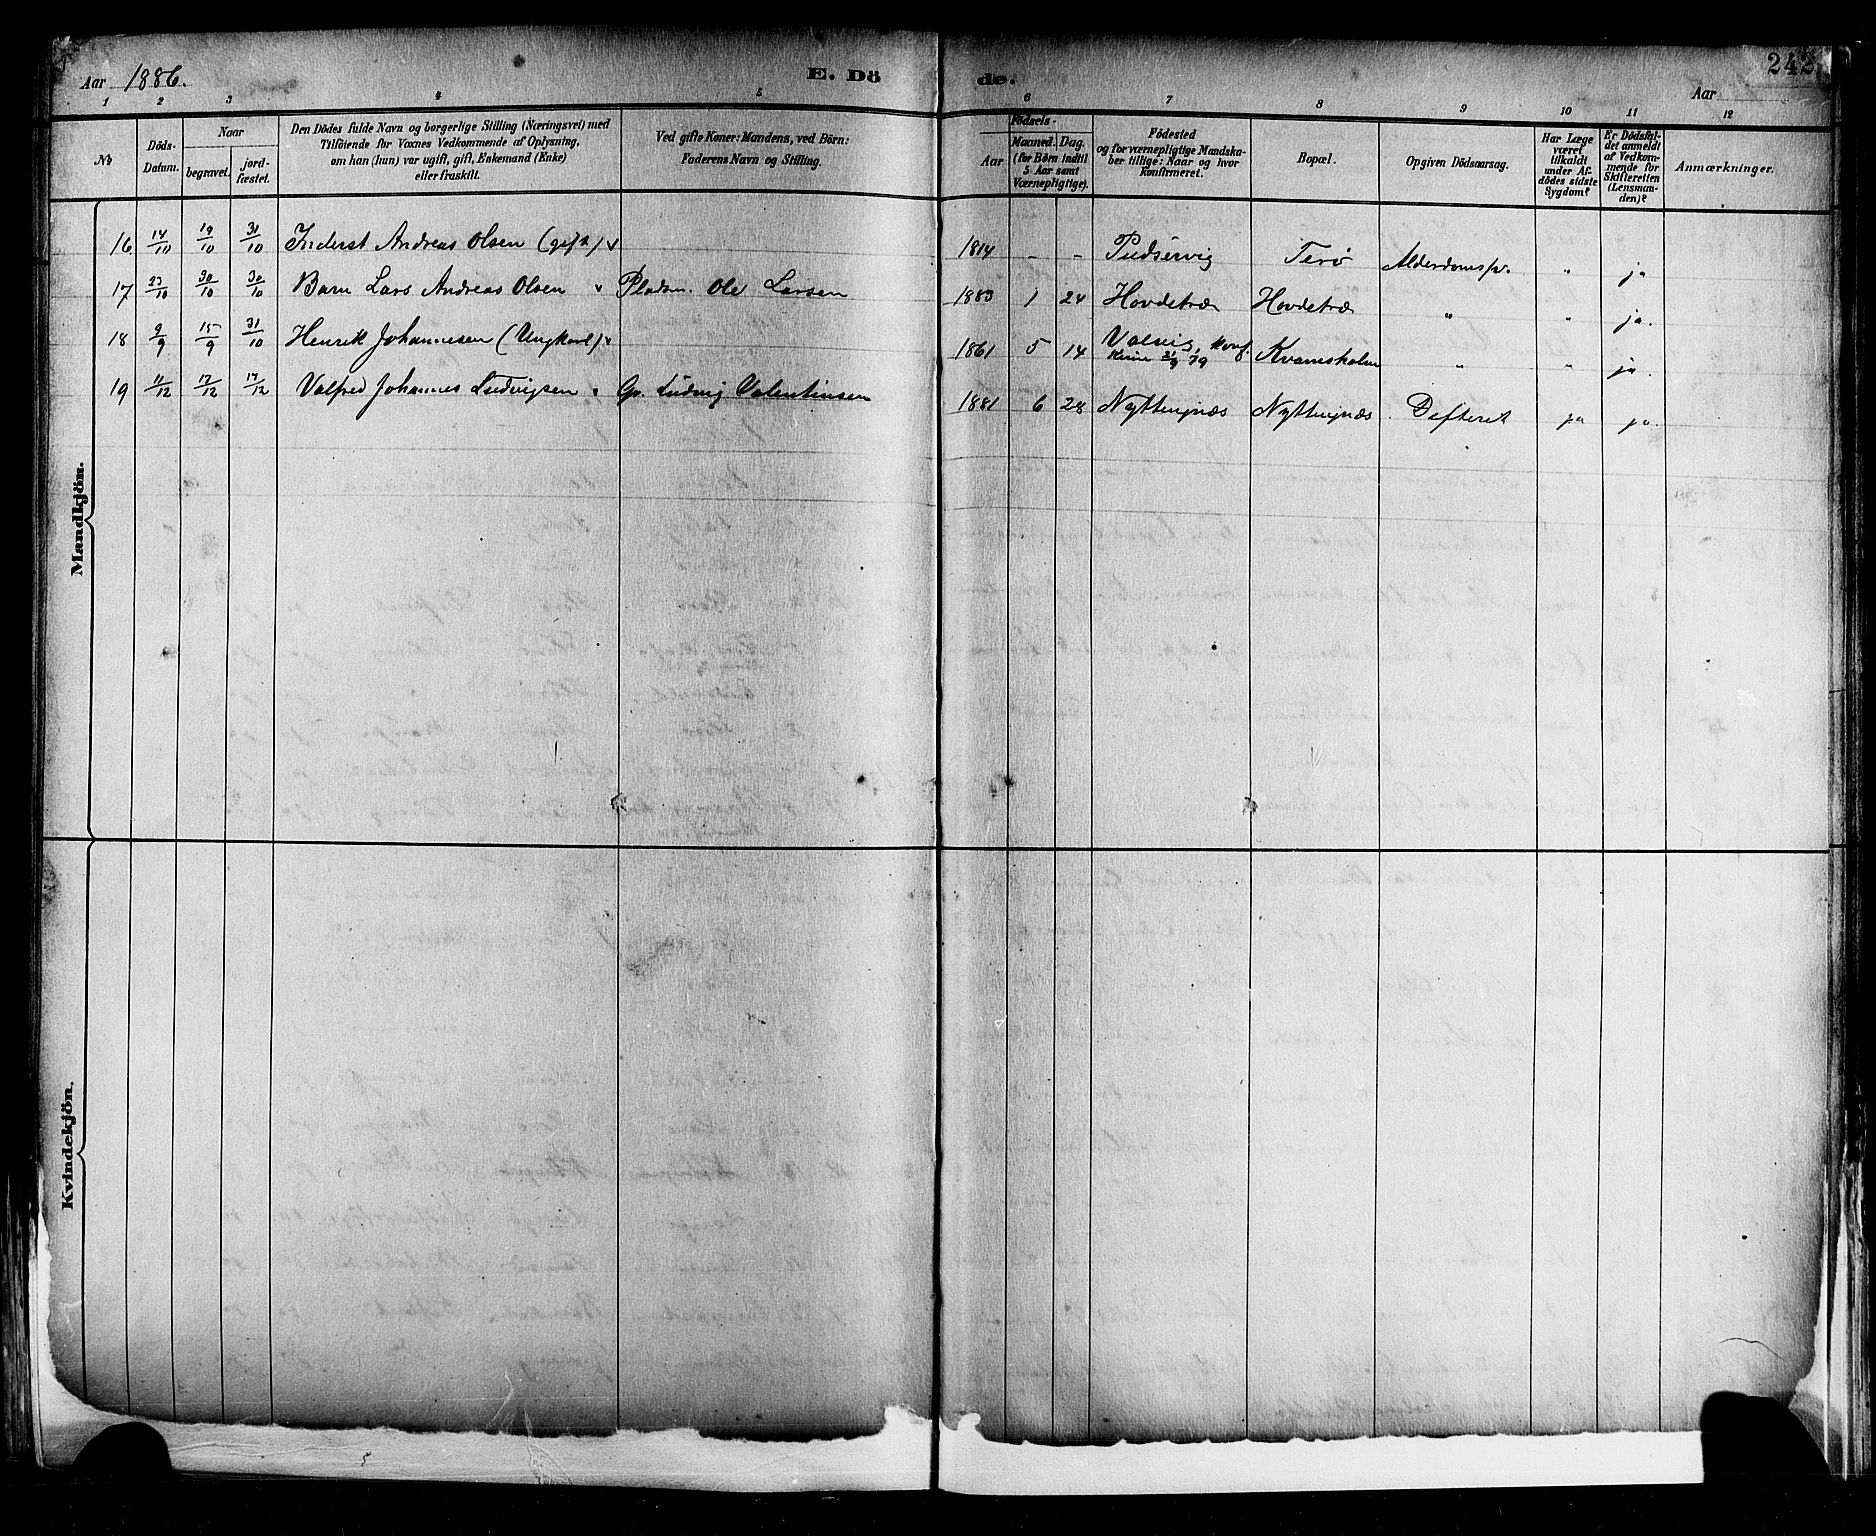 Aar 1886. E. Dö de. 242
Aar
1 2 3 4 5 6 7 8 9 10 11 12
No
Döds-Datum.
Naar
begravet. jord-fæstet.
Den Dödes fulde Navn og borgerlige Stilling (Næringsvei) med
Tilföiende for Voxnes Vedkommende af Oplysning,
om han (hun) var ugift, gift, Enkemand (Enke)
eller fraskilt.
Ved gifte Koner: Mandens, ved Börn:
Faderens Navn og Stilling.
Födsels-
Aar Maaned. Dag.
(for Börn indtil
5 Aar samt
Værnepligtige).
Födested
og for værnepligtige Mandska-
ber tillige: Naar og hvor
konfirmeret.
Bopæl.
Opgiven Dödsaarsag.
Har Læge
været
tilkaldt
under Af-
dödes sidste
Sygdom?
Er Dödsfal-
det anmeldt
af Vedkom-
mende for
Skifteretten
(Lensman-
den)?
Anmærkninger.
Mandkjön.
16. 14/10 19/10 31/10 Inderst Andreas Olsen (gift) 1814 - - Terö Alderdomssv. " ja
17 23/10 30/10 30/10 Barn Lars Andreas Olsen Pladsm. Ole Larsen 1883 1 24 Hovdetræ Hovdetræ " " ja.
18 9/9 15/9 31/10 Henrik Johannesen (Ungkarl) 1861 5 14 Konf. Kinn 21/9 79 Kvamsholm " " ja.
19 11/12 17/12 17/12 Valfred Johannes Ludvigsen Gr. Ludvig Valentinsen 1881 6 28 Nyttingnæs Nyttingnæs Defteret ja ja.
Kvindekjön.